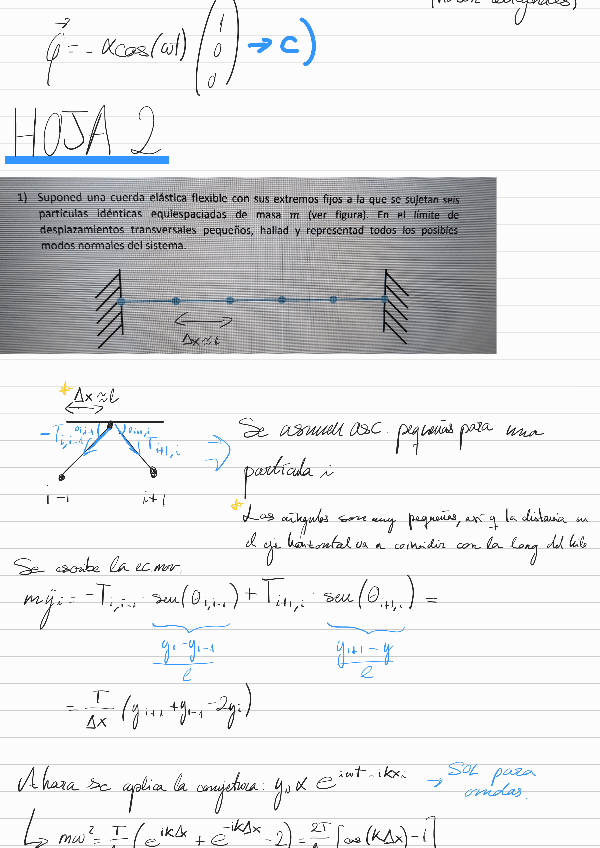 φ⃗ = - α cos(ωt) (1 0 0) → c)
HOJA 2
1) Suponed una cuerda elástica flexible con sus extremos fijos a la que se sujetan seis
partículas idénticas equiespaciadas de masa m (ver figura). En el límite de
desplazamientos transversales pequeños, hallad y representad todos los posibles
modos normales del sistema.
Δx ≈ l
* Δx ≈ l
-T_{i,i-1} θ_{i,i-1} θ_{i+1,i} T_{i+1,i}
i-1 i+1
Se asumen osc. pequeñas para una
partícula i
* Los ángulos son muy pequeños, así q la distancia en
el eje horizontal va a coincidir con la long del
Se escribe la ec mov.
mÿ_i = -T_{i,i-1} · sen(θ_{i,i-1}) + T_{i+1,i} · sen(θ_{i+1,i}) =
(y_i - y_{i-1})/l (y_{i+1} - y)/l
= T/Δx (y_{i+1} + y_{i-1} - 2y_i)
Ahora se aplica la conjetura: y_i ∝ e^{iωt - ikx_i} → SOL para
ondas.
↳ mω² = T/Δx (e^{ikΔx} + e^{-ikΔx} - 2) = 2T/Δx [cos(kΔx) - 1]